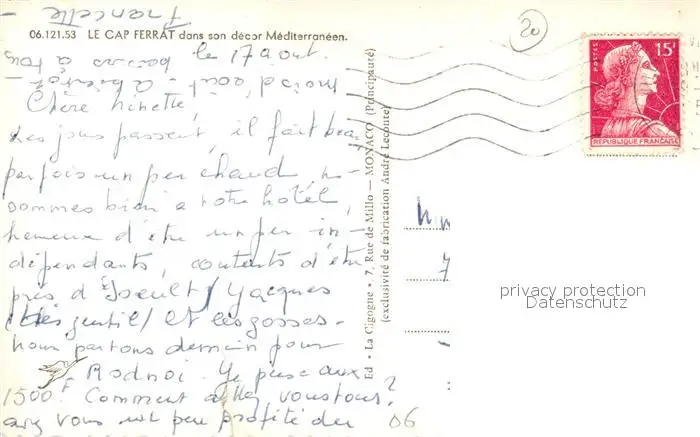 Francette
06.121.53 LE CAP FERRAT dans son décor Méditerranéen.
le 17 août.
bons baisers à tous
mois d'août - à bientôt -
Chère Ninette,
Les jours passent, il fait beau
parfois un peu chaud, n-
sommes bien à notre hôtel,
heureux d'être un peu in-
dépendants, contents d'être
près d'Iseult, Jacques
(très gentil) et les gosses.
Nous partons demain pour
Je pense aux
1500 F Comment allez vous tous?
avez vous un peu profité du 06
Ed • La Cigogne • 7, Rue de Millo — MONACO (Principauté)
(exclusivité de fabrication André Leconte)
20
POSTES
15F
REPUBLIQUE FRANÇAISE
7
privacy protection
Datenschutz